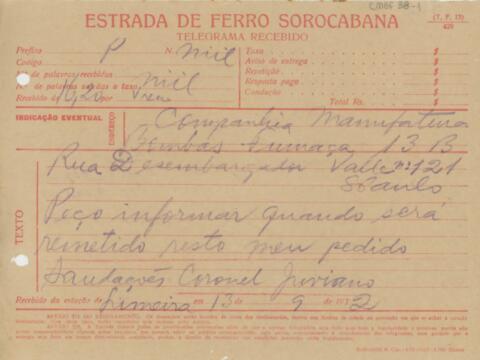 CMBF 38-1
ESTRADA DE FERRO SOROCABANA
(T. P. 13)
TELEGRAMA RECEBIDO
Prefixo P N. Niil
Codigo
N. de palavras recebidas Niil
N. de palavras usadas a taxa
Recebido de 16,20 por
Taxa $
Aviso de entrega $
Repetição $
Resposta paga $
Condução $
Total Rs. $
INDICAÇÃO EVENTUAL
ENDEREÇO
Companhia Manufatura
Bombas Fumaça 13 B
Rua Desembargador Valle nº 121
S Paulo
TEXTO
Peço informar quando será
remetido resto meu pedido
Saudações Coronel Juviano
Recebido da estação de Limeira em 13 de 9 de 1932